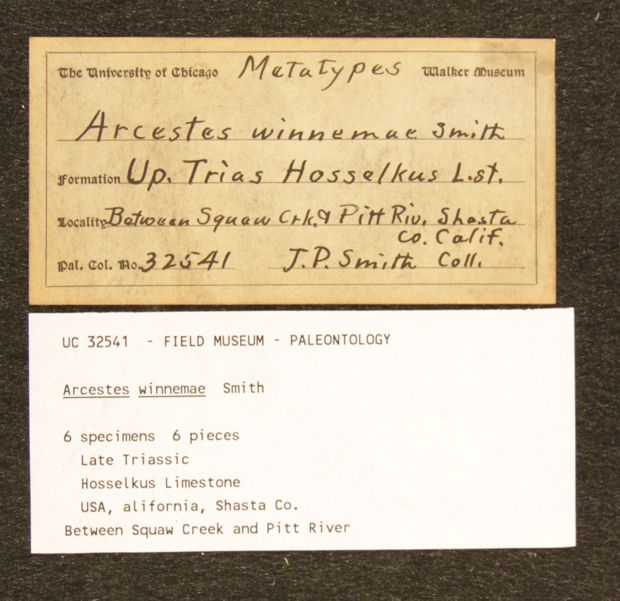 The University of Chicago Metatypes Walker Museum
Arcestes winnemae Smith
Formation Up. Trias Hosselkus L.st.
Locality Between Squaw Crk. & Pitt Riv. Shasta
Co. Calif.
Pal. Col. No. 32541 J.P. Smith Coll.
UC 32541 - FIELD MUSEUM - PALEONTOLOGY
Arcestes winnemae Smith
6 specimens 6 pieces
Late Triassic
Hosselkus Limestone
USA, alifornia, Shasta Co.
Between Squaw Creek and Pitt River